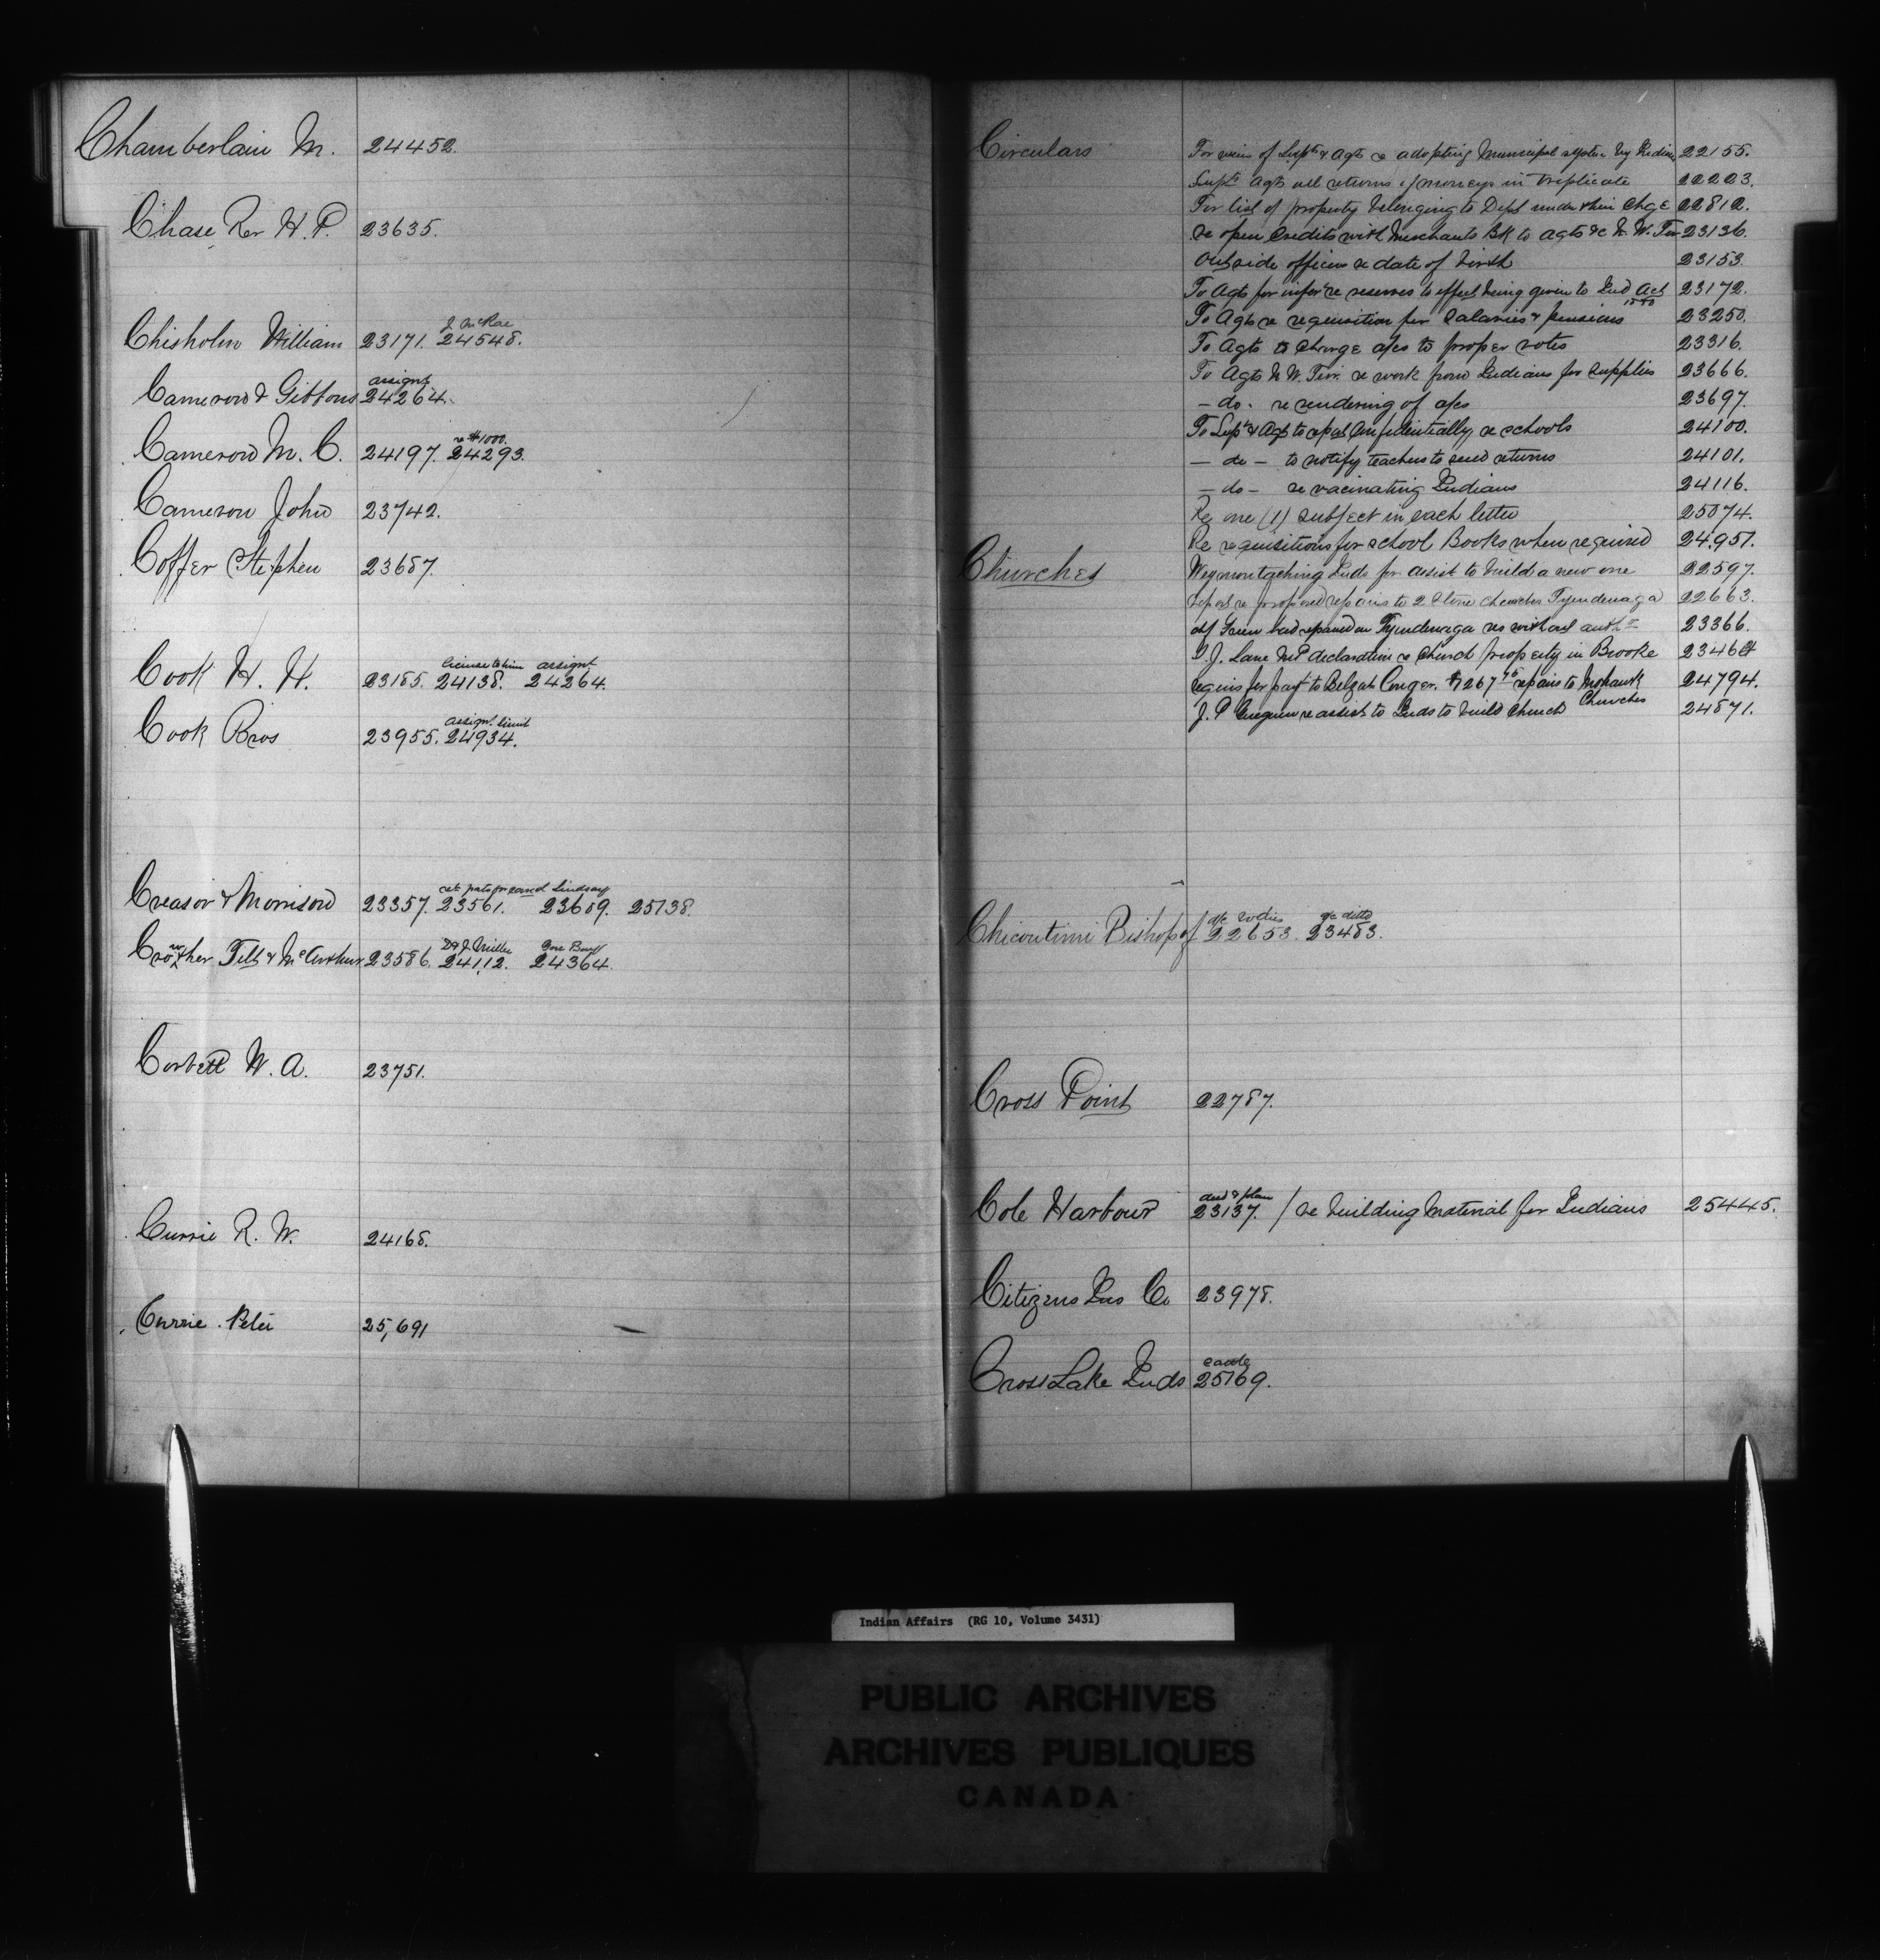 Chamberlain M. 24452.
Chase Rev H. P. 23635.
J McRae
Chisholm William 23171. 24548.
assignt
Cameron & Gibbons 24264.
re $1000.
Cameron M. C. 24197. 24293.
Cameron John 23742.
Coffer Stephen 23687.
license to him assignt
Cook H. H. 23185. 24138. 24264.
assignt. limit
Cook Bros 23955. 24934.
Lindsay
Creasor & Morrison 23357. 23561. 23609. 25138.
Crowther Tilt & McArthur 23586. 24112. 24364.
Corbett W. A. 23751.
Currie R. W. 24168.
Currie Peter 25,691
Circulars For views of Supts & Agts re adopting Municipal system by Indians 22155.
Supts Agts all returns of moneys in triplicate 22223.
For list of property belonging to Dept under their chge 22812.
re open Credits with Merchants Bk to Agts &c N. W. Ter 23136.
Outside officers re date of birth 23153.
To Agts for infor re reserves to effect being given to Ind Act 1880 23172.
To Agts re requisition for Salaries & pensions 23250.
To Agts to charge a/cs to proper votes 23316.
To Agts N. W. Terr. re work from Indians for supplies 23666.
- do - re rendering of a/cs 23697.
To Supts & Agts to report Confidentially re schools 24100.
- do - to notify teachers to send returns 24101.
- do - re vacinating Indians 24116.
Re one (1) subject in each letter 25074.
Re requisitions for school Books when required 24,951.
Churches Weymontaching Inds for assist to build a new one 22597.
report re proposed repairs to 2 Stone churches Tyendenaga 22663.
had repaired on Tyendenaga res without authy 23366.
declaration re Church property in Brooke 23464
requis for payt to Belzah Conger. $1267 75 repairs to Mohawk Churches 24794.
J. P. re assist to Inds to build Church 24871.
a/c bodies a/c ditto
Chicoutimi Bishop of 22653. 23483.
Cross Point 22787.
deed & plan
Cole Harbour 23137. / re building material for Indians 25445.
Citizens Ins Co 23978.
Cross Lake Inds 25169.
Indian Affairs (RG 10, Volume 3431)
PUBLIC ARCHIVES
ARCHIVES PUBLIQUES
CANADA